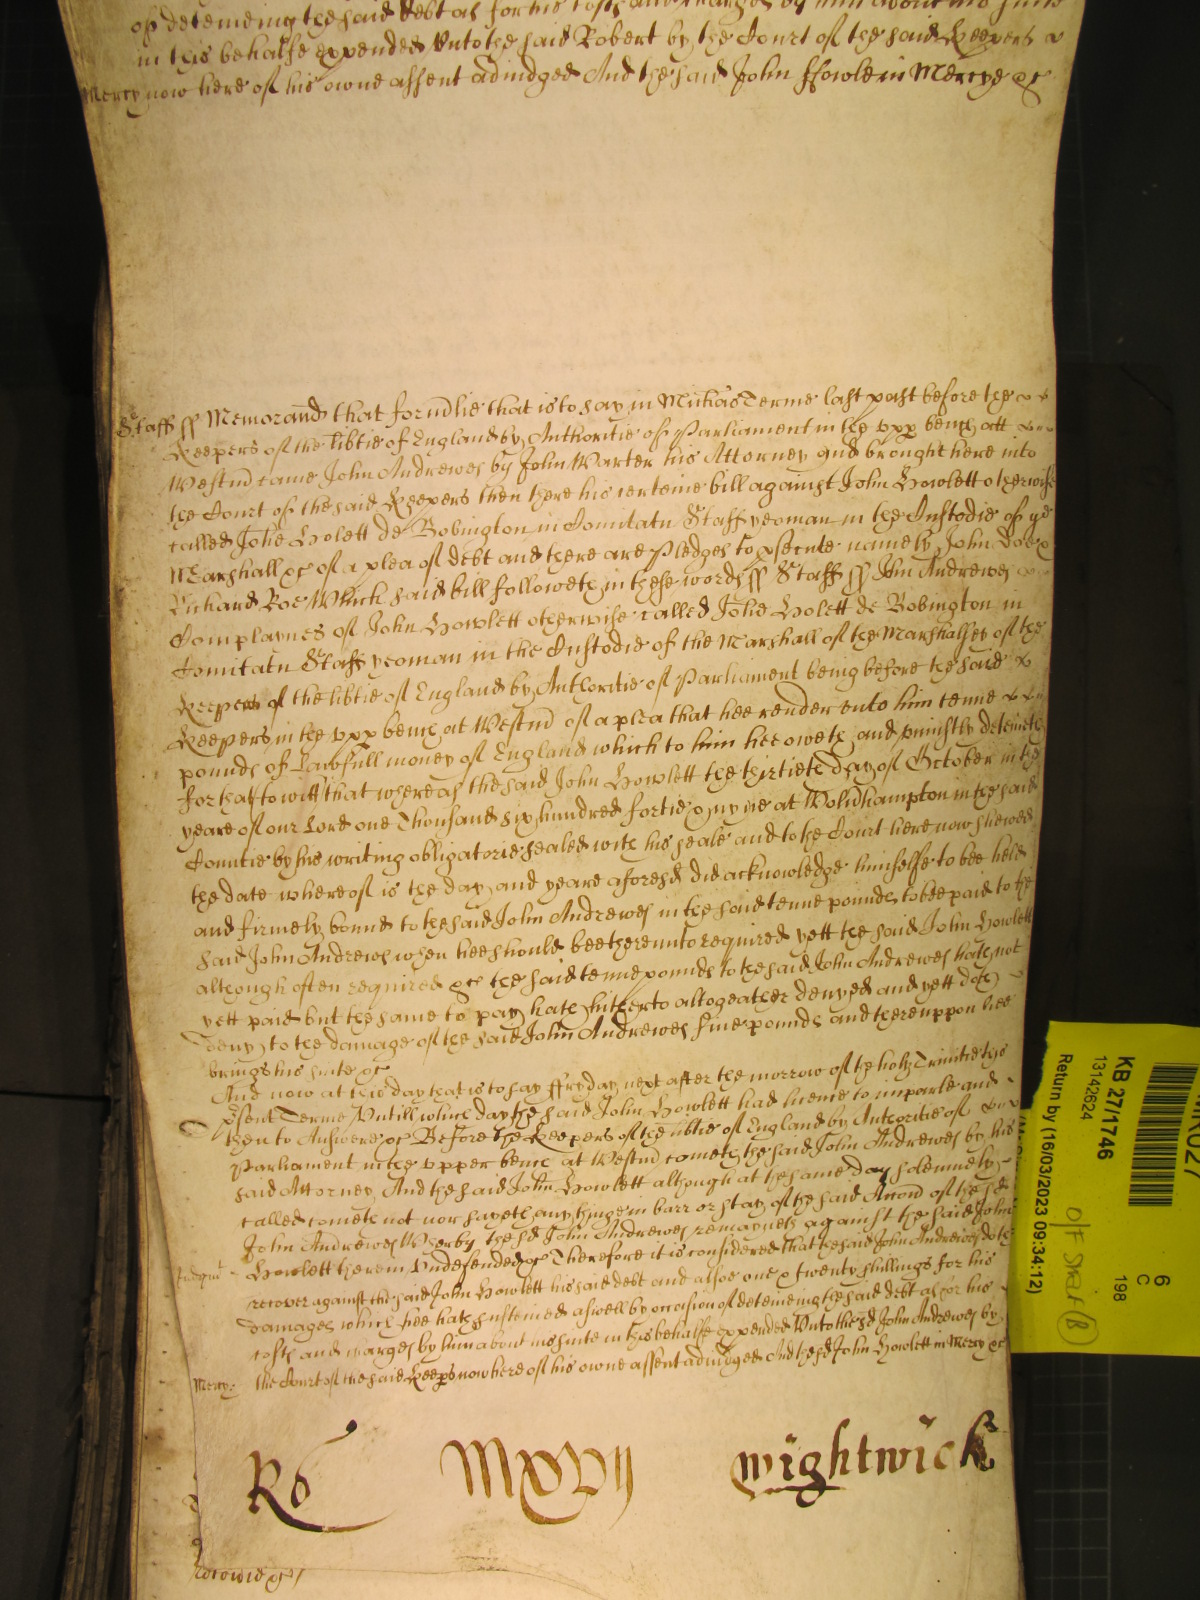 of deteineing the said debt as for his costs and charges by him about his suite
in this behalfe expended Unto the said Robert by the Court of the said Keepers
Mercy now here of his owne assent adiudged And the said John ffowle in Mercye &c
Staff ss Memorand that formlie that is to say in Michas Terme last past before the
Keepers of the libtie of England by Authoritie of Parliament in the upp bench att
Westm came John Andrewes by John Warter his Attorney and brought here into
the Court of the said Keepers then there his certeine bill against John Howlett otherwise
called Johe Holett de Bobington in Comitatu Staff yeoman in the Custodie of ye
Marshall &c of a plea of debt and there are Pledges to psecute namely John Doe &
Richard Roe Which said bill followeth in these words ss Staff ss John Andrewes
Complaynes of John Howlett otherwise called Johe Holett de Bobington in
Comitatu Staff yeoman in the Custodie of the Marshall of the Marshalsey of the
Keepers of the libtie of England by Authoritie of Parliament being before the said
Keepers in the upp bench at Westm of a plea that hee render unto him tenne
pounds of Lawfull money of England which to him hee oweth and uniustly deteineth
for that to witt that whereas the said John Howlett the thirtieth day of October in the
yeare of our Lord one Thousand six hundred fortie & nyne at Wolvhampton in the said
Countie by his writing obligatorie sealed with his seale and to the Court here now shewed
the date whereof is the day and yeare aforesd did acknowledge himselfe to bee held
and firmely bound to the said John Andrewes in the said tenne pounds to bee paid to the
said John Andrewes when hee should bee thereunto required yett the said John Howlett
although often required &c the said tenne pounds to the said John Andrewes hath not
yett paid but the same to pay hath hitherto altogeather denyed and yett doth
deny to the damage of the said John Andrewes five pounds and thereuppon hee
brings his suite &c
And now at this day that is to say ffryday next after the morrow of the holy Trinitie this
psent Terme Untill which day the said John Howlett had licence to imparle and
then to Answere &c Before the Keepers of the libtie of England by Authoritie of
Parliament in the upper bench at Westm cometh the said John Andrewes by his
said Attorney And the said John Howlett although at the same day solemnely
called cometh not nor sayeth any thinge in barr or stay of the said Accon of the sd
John Andrewes Wherby the sd John Andrewes remayneth against the said John
Judgmt Howlett therein Undefended &c Therefore it is considered that the said John Andrewes do
recover against the said John Howlett his said debt and alsoe one & twenty shillings for his
damages which hee hath susteined aswell by occasion of deteineing the said debt as for his
costs and charges by him about his suite in this behalfe expended Unto the sd John Andrewes by
Mercy: the Court of the said Keeps now here of his owne assent adiudged And the sd John Howlett in Mercy &c
Ro MXVII Wightwick
KB 27/1746
13142624
Return by (16/03/2023 09:34:12)
6
C
198